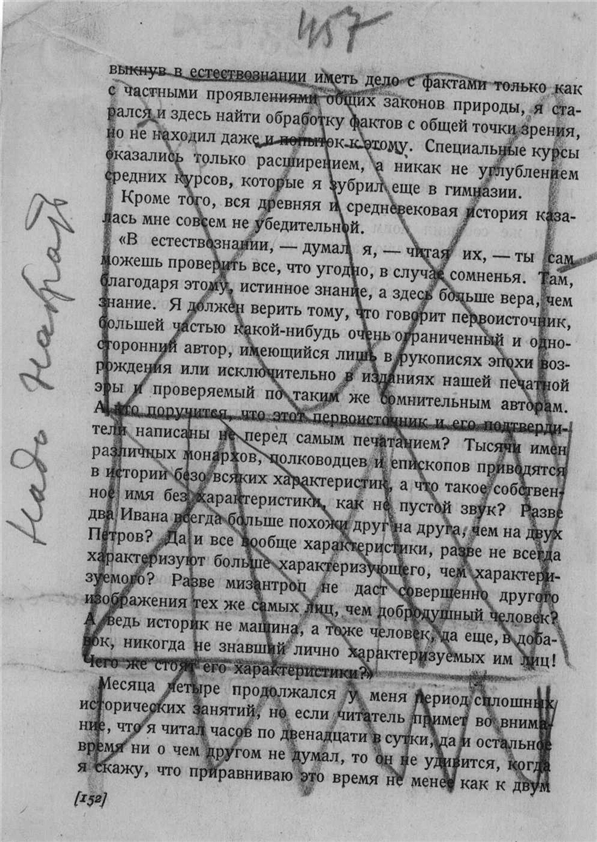 457
выкнув в естествознании иметь дело с фактами только как
с частными проявлениями общих законов природы, я ста-
рался и здесь найти обработку фактов с общей точки зрения,
но не находил даже и попыток к этому. Специальные курсы
оказались только расширением, а никак не углублением
средних курсов, которые я зубрил еще в гимназии.
Кроме того, вся древняя и средневековая история каза-
лась мне совсем не убедительной.
«В естествознании, — думал я, — читая их, — ты сам
можешь проверить все, что угодно, в случае сомненья. Там,
благодаря этому, истинное знание, а здесь больше вера, чем
знание. Я должен верить тому, что говорит первоисточник,
большей частью какой-нибудь очень ограниченный и одно-
сторонний автор, имеющийся лишь в рукописях эпохи воз-
рождения или исключительно в изданиях нашей печатной
эры и проверяемый по таким же сомнительным авторам.
А кто поручится, что этот первоисточник и его подтверди-
тели написаны не перед самым печатанием? Тысячи имен
различных монархов, полководцев и епископов приводятся
в истории безо всяких характеристик, а что такое собствен-
ное имя без характеристики, как не пустой звук? Разве
два Ивана всегда больше похожи друг на друга, чем на двух
Петров? Да и все вообще характеристики, разве не всегда
характеризуют больше характеризующего, чем характери-
зуемого? Разве мизантроп не даст совершенно другого
изображения тех же самых лиц, чем добродушный человек?
А ведь историк не машина, а тоже человек, да еще, в доба-
вок, никогда не знавший лично характеризуемых им лиц!
Чего же стоят его характеристики?»
Месяца четыре продолжался у меня период сплошных
исторических занятий, но если читатель примет во внима-
ние, что я читал часов по двенадцати в сутки, да и остальное
время ни о чем другом не думал, то он не удивится, когда
я скажу, что приравниваю это время не менее как к двум
[152]
Надо набрать